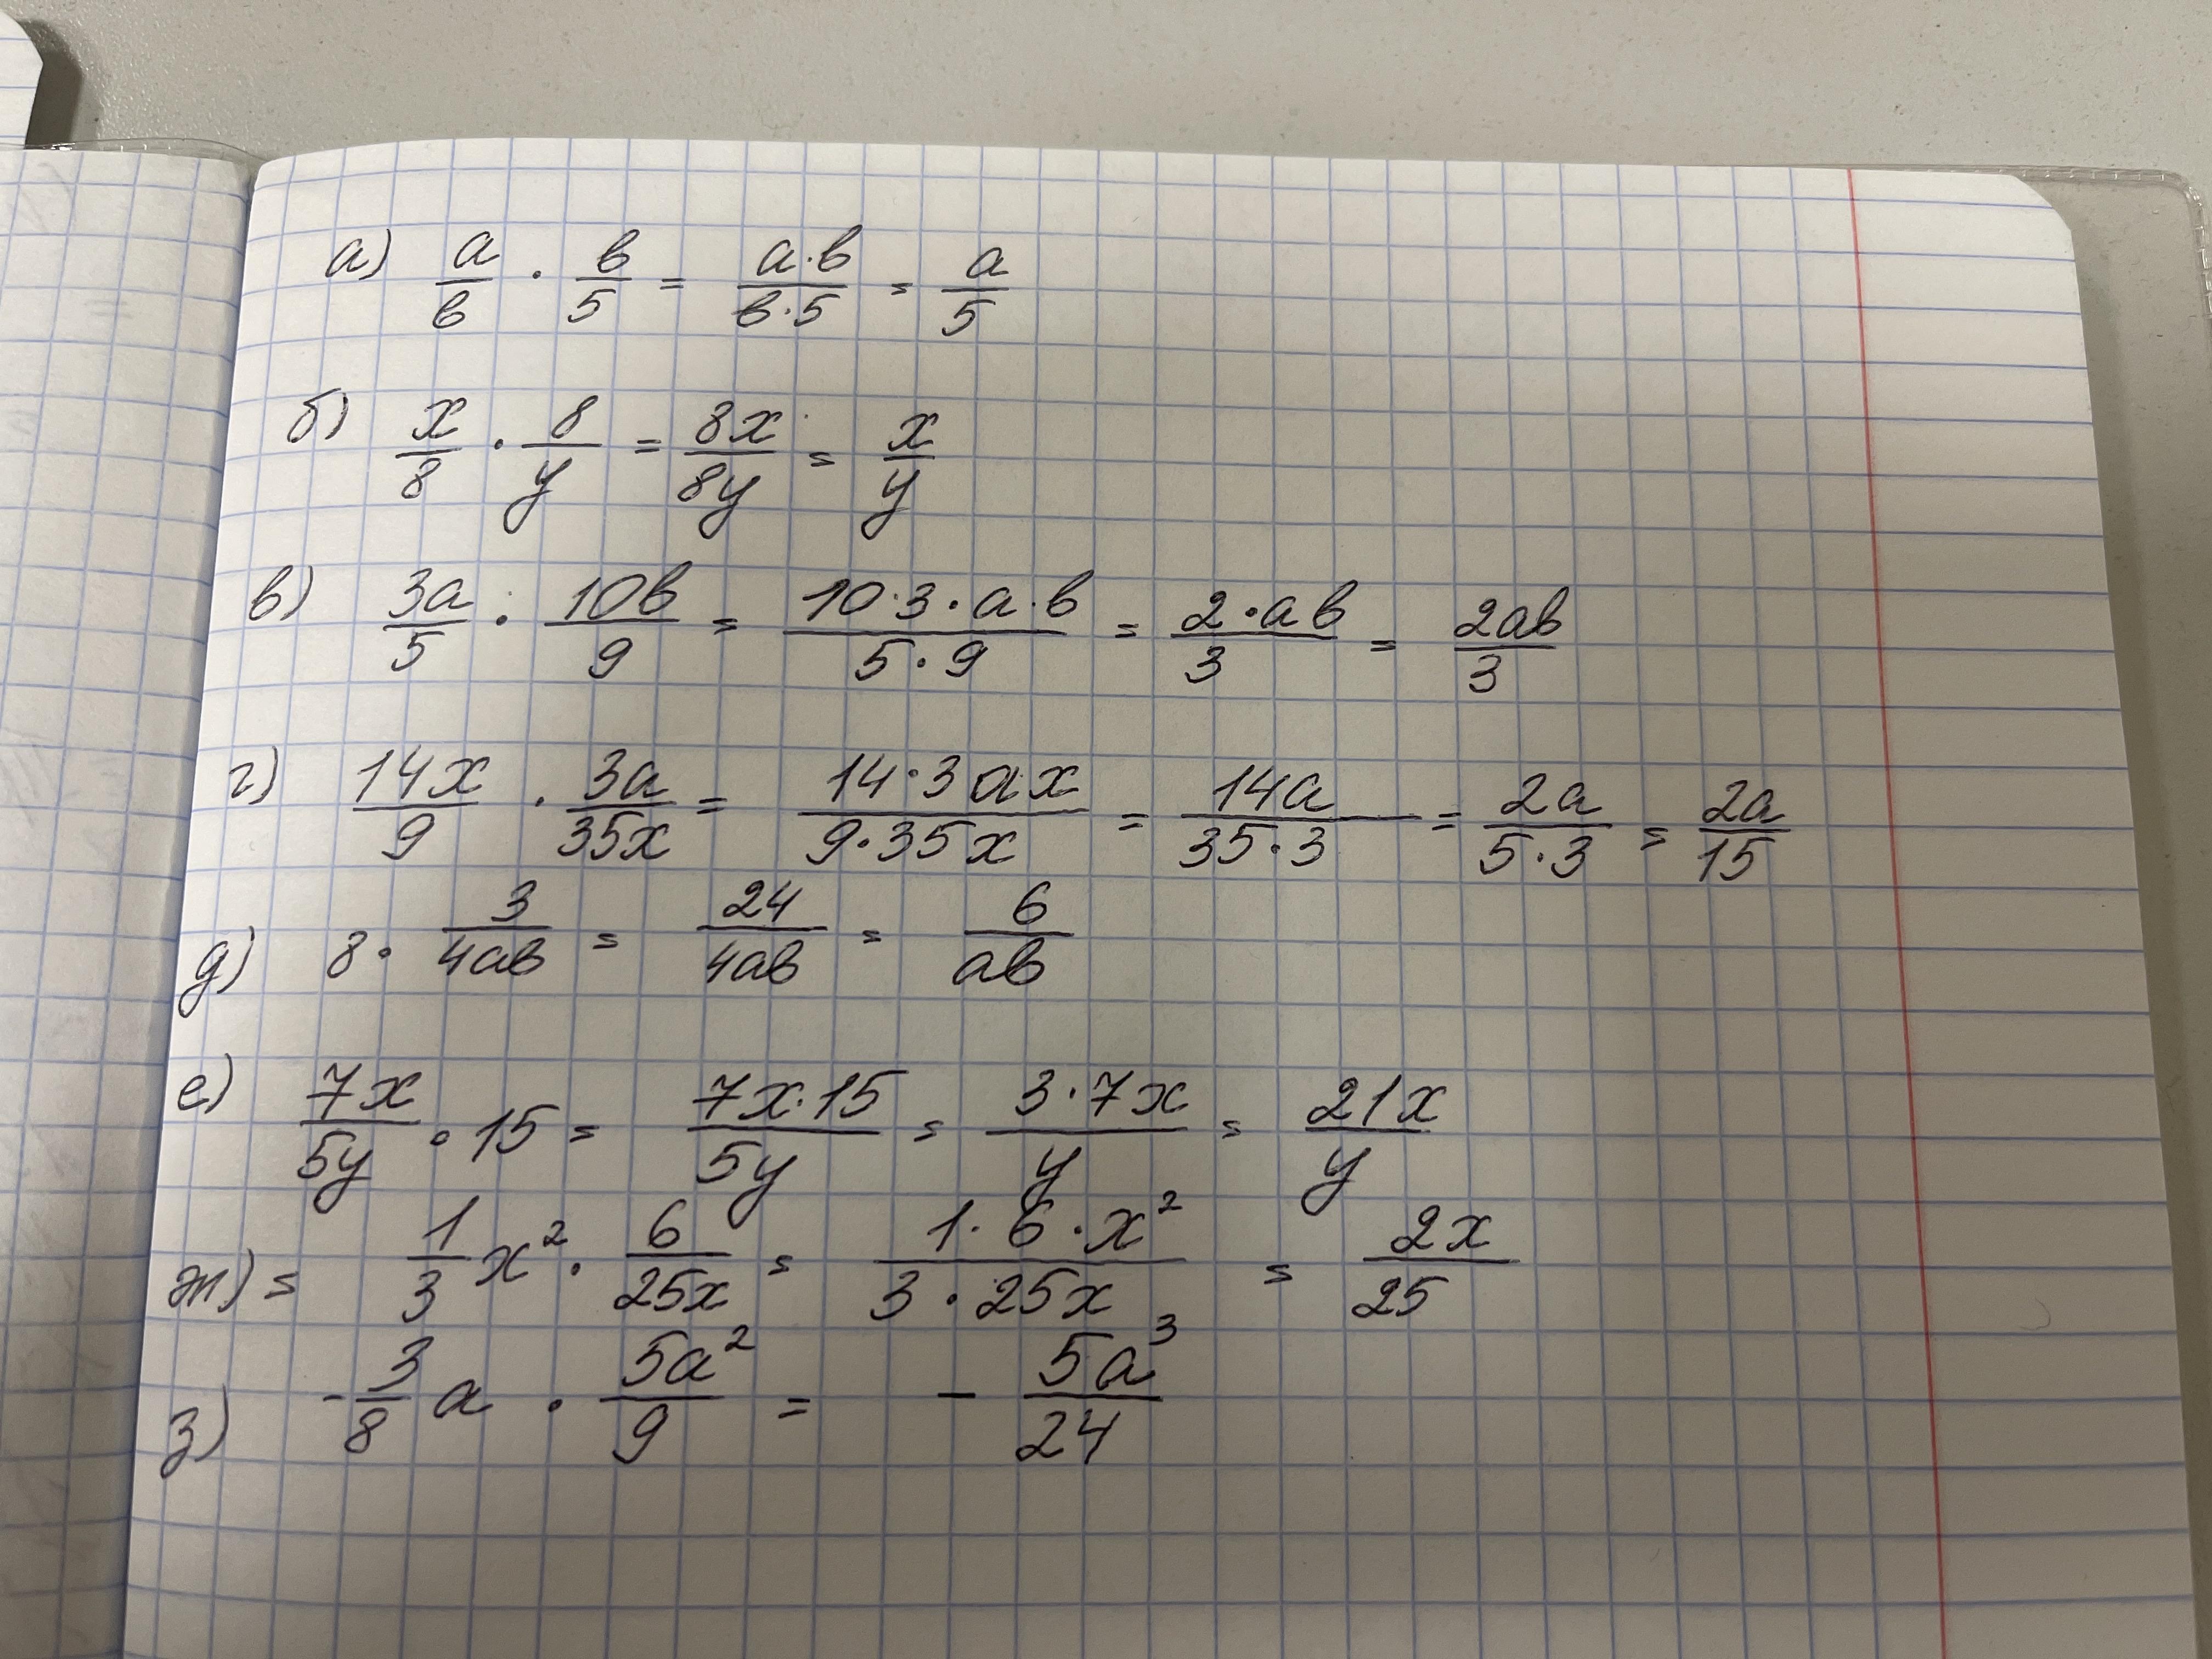 а) a/b · b/5 = a·b/b·5 = a/5
б) x/8 · 8/y = 8x/8y = x/y
в) 3a/5 · 10b/9 = 10·3·a·b/5·9 = 2·ab/3 = 2ab/3
г) 14x/9 · 3a/35x = 14·3ax/9·35x = 14a/35·3 = 2a/5·3 = 2a/15
д) 8· 3/4ab = 24/4ab = 6/ab
е) 7x/5y · 15 = 7x·15/5y = 3·7x/y = 21x/y
ж) = 1/3 x² · 6/25x = 1·6·x²/3·25x = 2x/25
з) -3/8 a · 5a²/9 = - 5a³/24